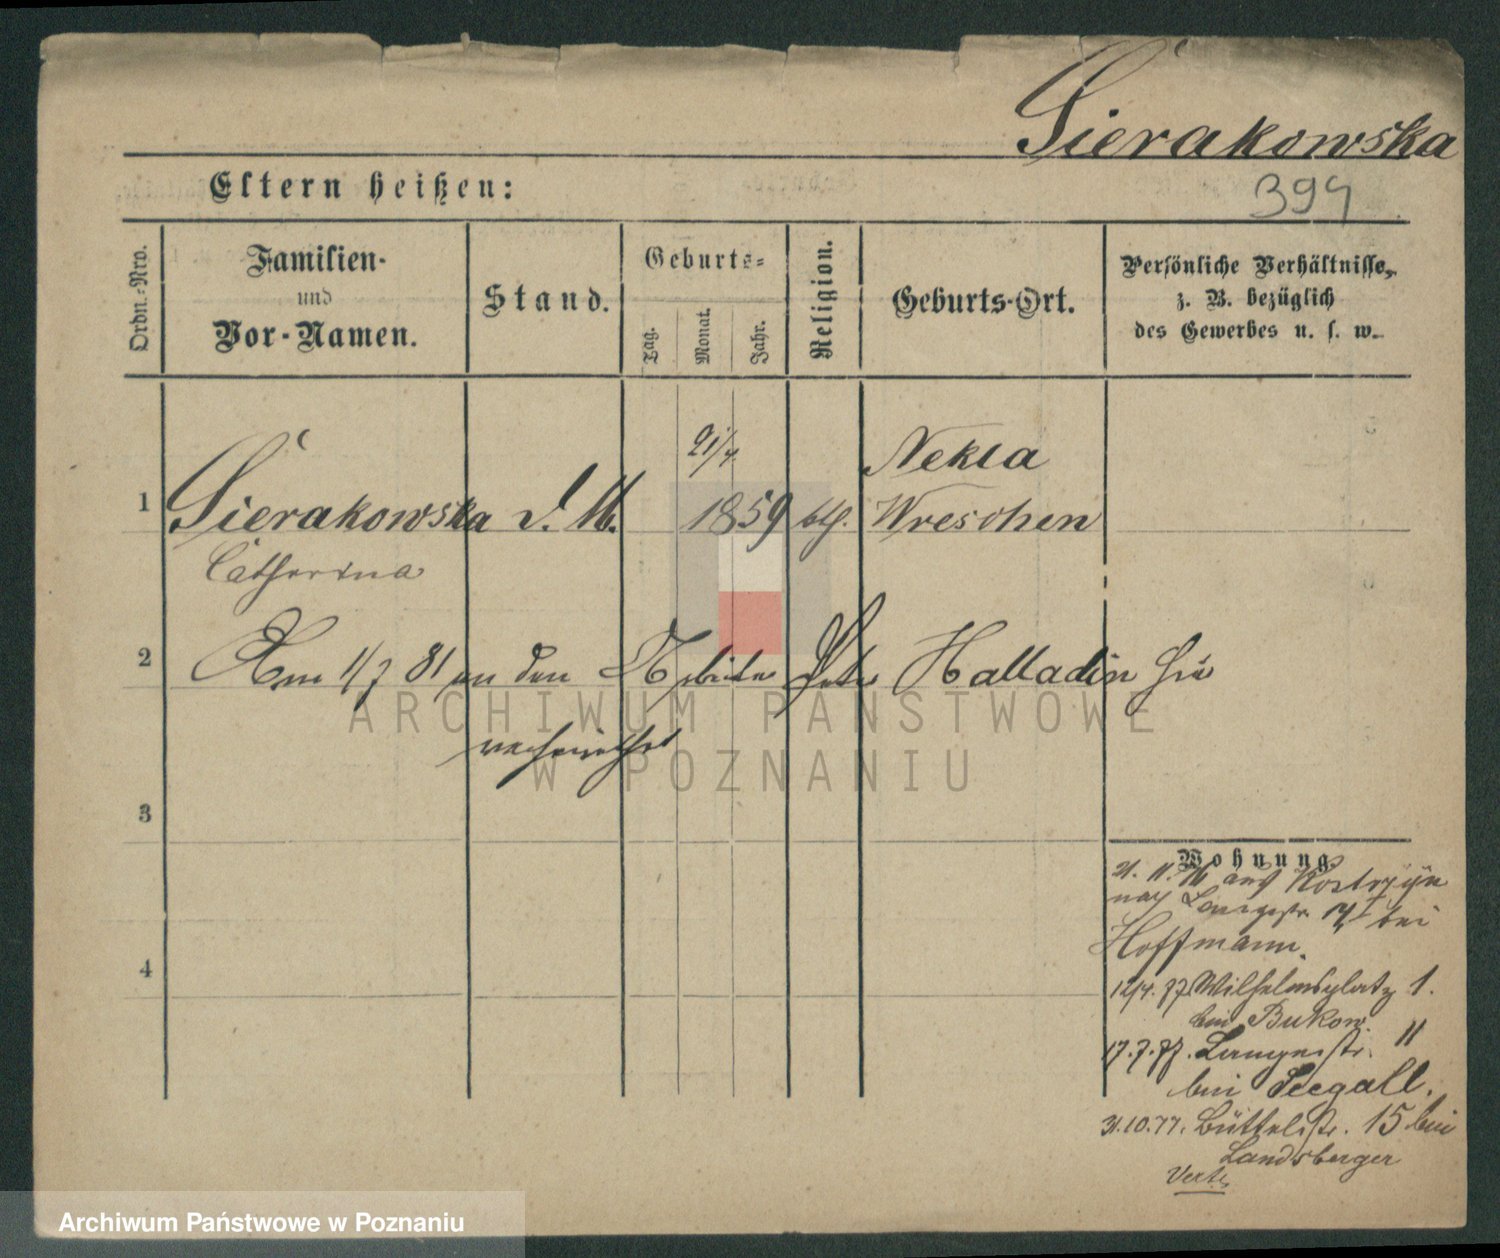 Sierakowska
394
Eltern heißen:
Ordn.-Nro.
Familien-
und
Vor-Namen.
Stand.
Geburts-
Tag.
Monat.
Jahr.
Religion.
Geburts-Ort.
Persönliche Verhältnisse,
z. B. bezüglich
des Gewerbes u. s. w.
1
Sierakowska d. M.
21/4
1859
kth.
Nekla
Wreschen
Catharina
2
Am 1/7 81 an den Arbeiter Peter Halladin hier
verheirathet
3
4
Wohnung.
21. 11. 76 aus Kostrzyn
nach Langestr. bei
Hoffmann.
12/4. 77 Wilhelmsplatz 1.
bei Bukow.
17.7.77. Langestr. 11
bei Seegall.
31.10.77. Büttelstr. 15 bei
Landsberger
Verte
ARCHIWUM PAŃSTWOWE
W POZNANIU
Archiwum Państwowe w Poznaniu